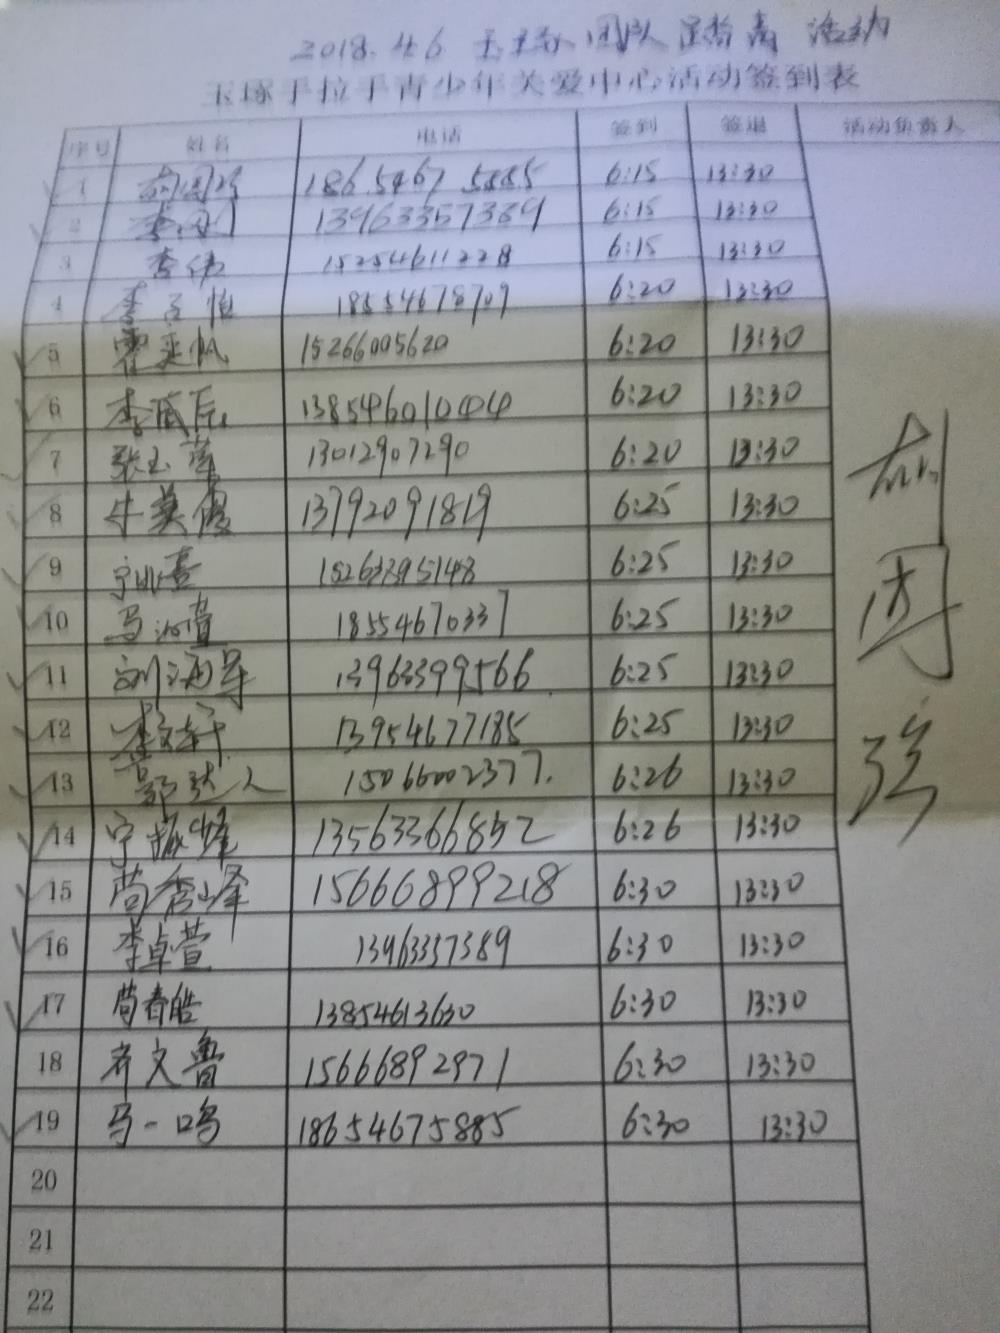 2018.4.6 玉琢团队 踏青 活动
玉琢手拉手青少年关爱中心活动签到表
序号 姓名 电话 签到 签退 活动负责人
1 18654675885 6:15 13:30
2 13963357389 6:15 13:30
3 李伟 15254611228 6:15 13:30
4 李 怡 18554678709 6:20 13:30
5 霍奕帆 15266005620 6:20 13:30
6 李 13854601044 6:20 13:30
7 张玉萍 13012907290 6:20 13:30
8 牛美霞 13792091819 6:25 13:30
9 宁 15263395148 6:25 13:30
10 马 18554670337 6:25 13:30
11 刘海军 13963399566 6:25 13:30
12 李文轩 13954677185 6:25 13:30
13 人 15066002377. 6:26 13:30
14 宁 峰 13563366852 6:26 13:30
15 苘秀峰 15666899218 6:30 13:30
16 李卓萱 13963357389 6:30 13:30
17 苘春皓 13854613630 6:30 13:30
18 齐文鲁 15666892971 6:30 13:30
19 马一鸣 18654675885 6:30 13:30
20
21
22